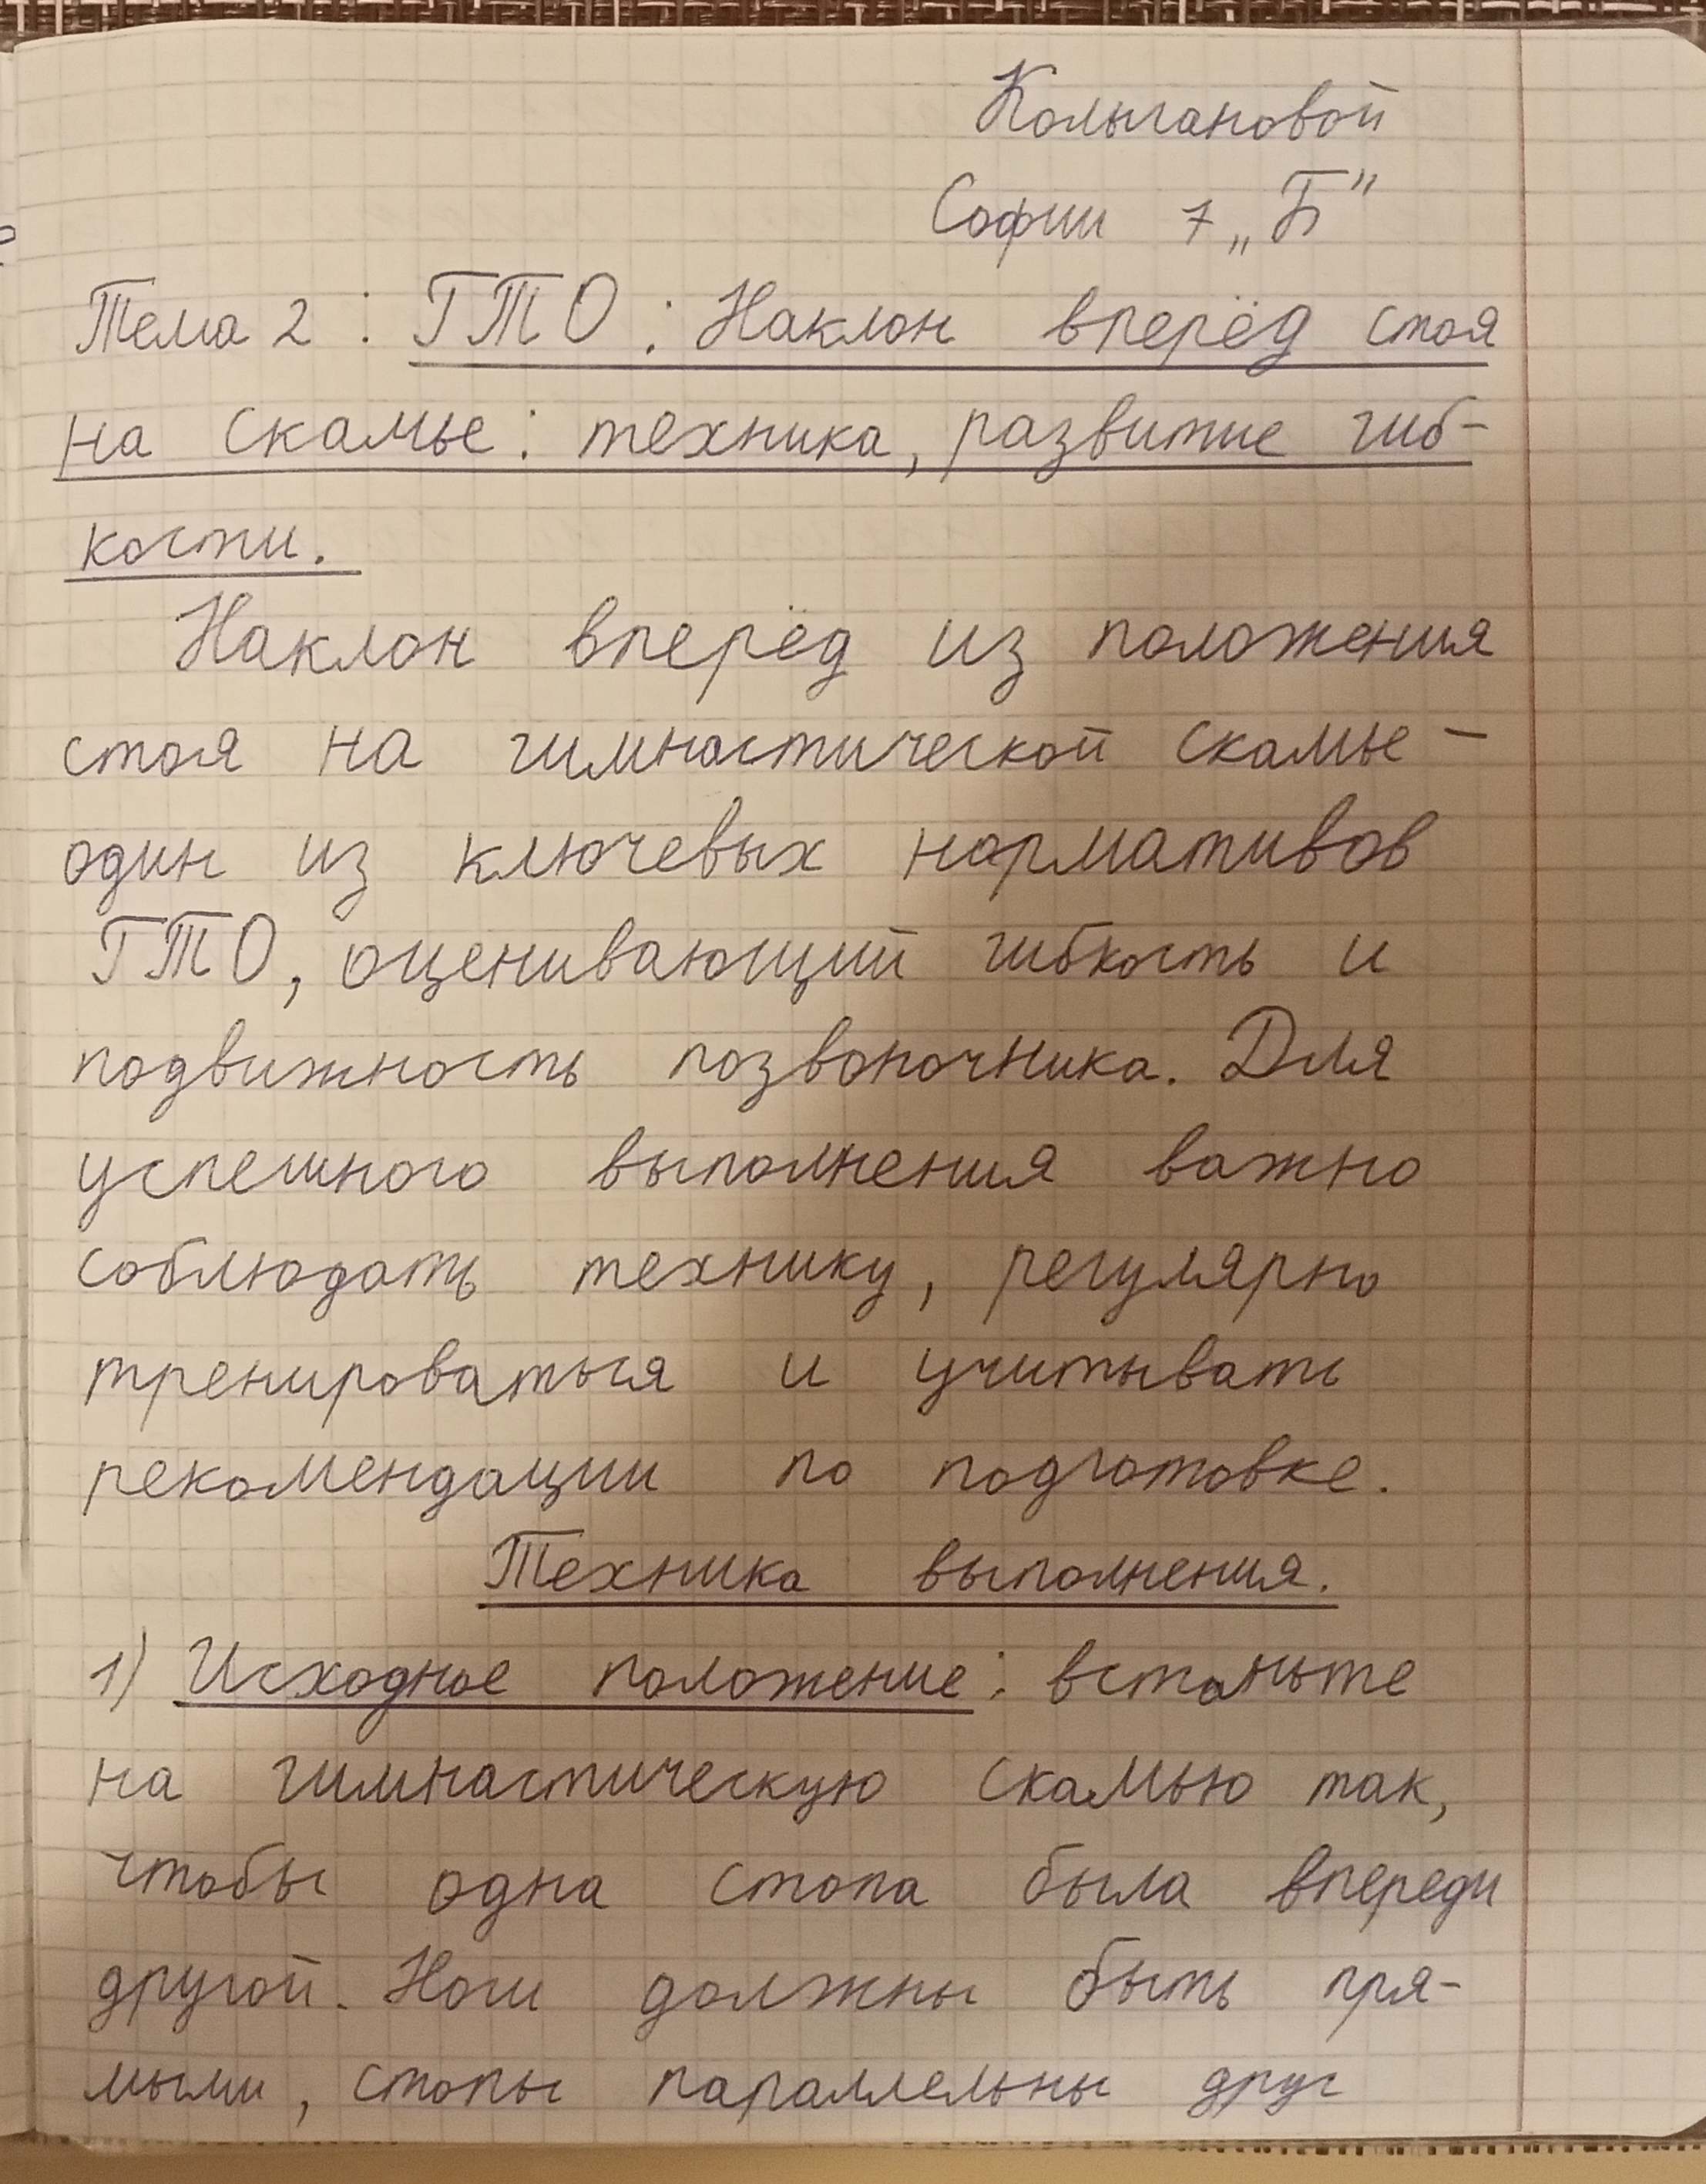 Колыгановой
Софии 7 „Б"
Тема 2 : ГТО : Наклон вперёд стоя
на скамье : техника, развитие гиб-
кости.
Наклон вперёд из положения
стоя на гимнастической скамье -
один из ключевых нормативов
ГТО, оценивающий гибкость и
подвижность позвоночника. Для
успешного выполнения важно
соблюдать технику, регулярно
тренироваться и учитывать
рекомендации по подготовке.
Техника выполнения.
1) Исходное положение : встаньте
на гимнастическую скамью так,
чтобы одна стопа была впереди
другой. Ноги должны быть пря-
мыми, стопы параллельны друг